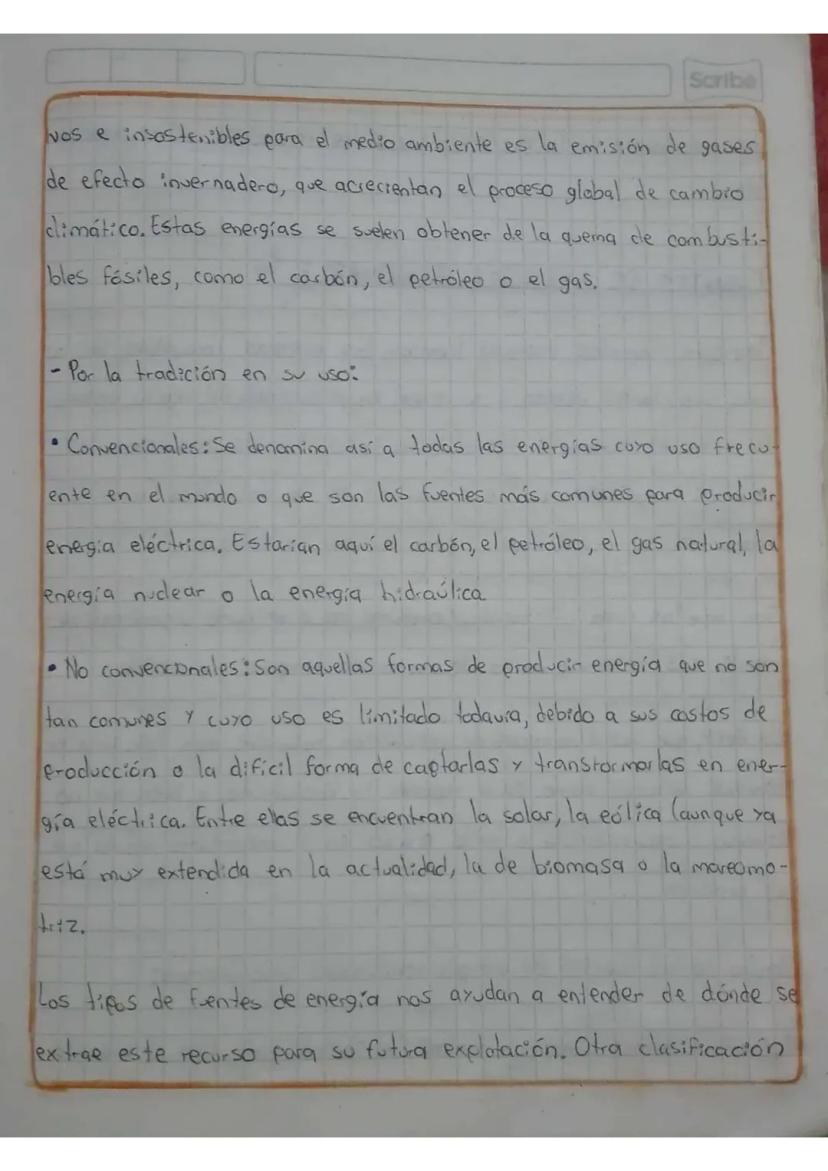 Scribe
vos e insostenibles para el medio ambiente es la emisión de gases
de efecto invernadero, que acrecientan el proceso global de cambio
climático. Estas energías se suelen obtener de la quema de combusti-
bles fósiles, como el carbón, el petróleo o el gas.
- Por la tradición en su uso:
• Convencionales: Se denomina así a todas las energías cuyo uso frecu-
ente en el mundo o que son las fuentes más comunes para producir
energía eléctrica. Estarian aquí el carbón, el petróleo, el gas natural, la
energía nuclear o la energía hidraúlica
• No convencionales: Son aquellas formas de producir energía que no son
tan comunes y cuyo uso es limitado todavía, debido a sus costos de
producción o la dificil forma de captarlas y transformarlas en ener-
gía eléctrica. Entre ellas se encuentran la solar, la eólica (aunque ya
está muy extendida en la actualidad, la de biomasa o la mareomo-
triz.
Los tipos de fuentes de energía nos ayudan a entender de dónde se
extrae este recurso para su futura explotación. Otra clasificación